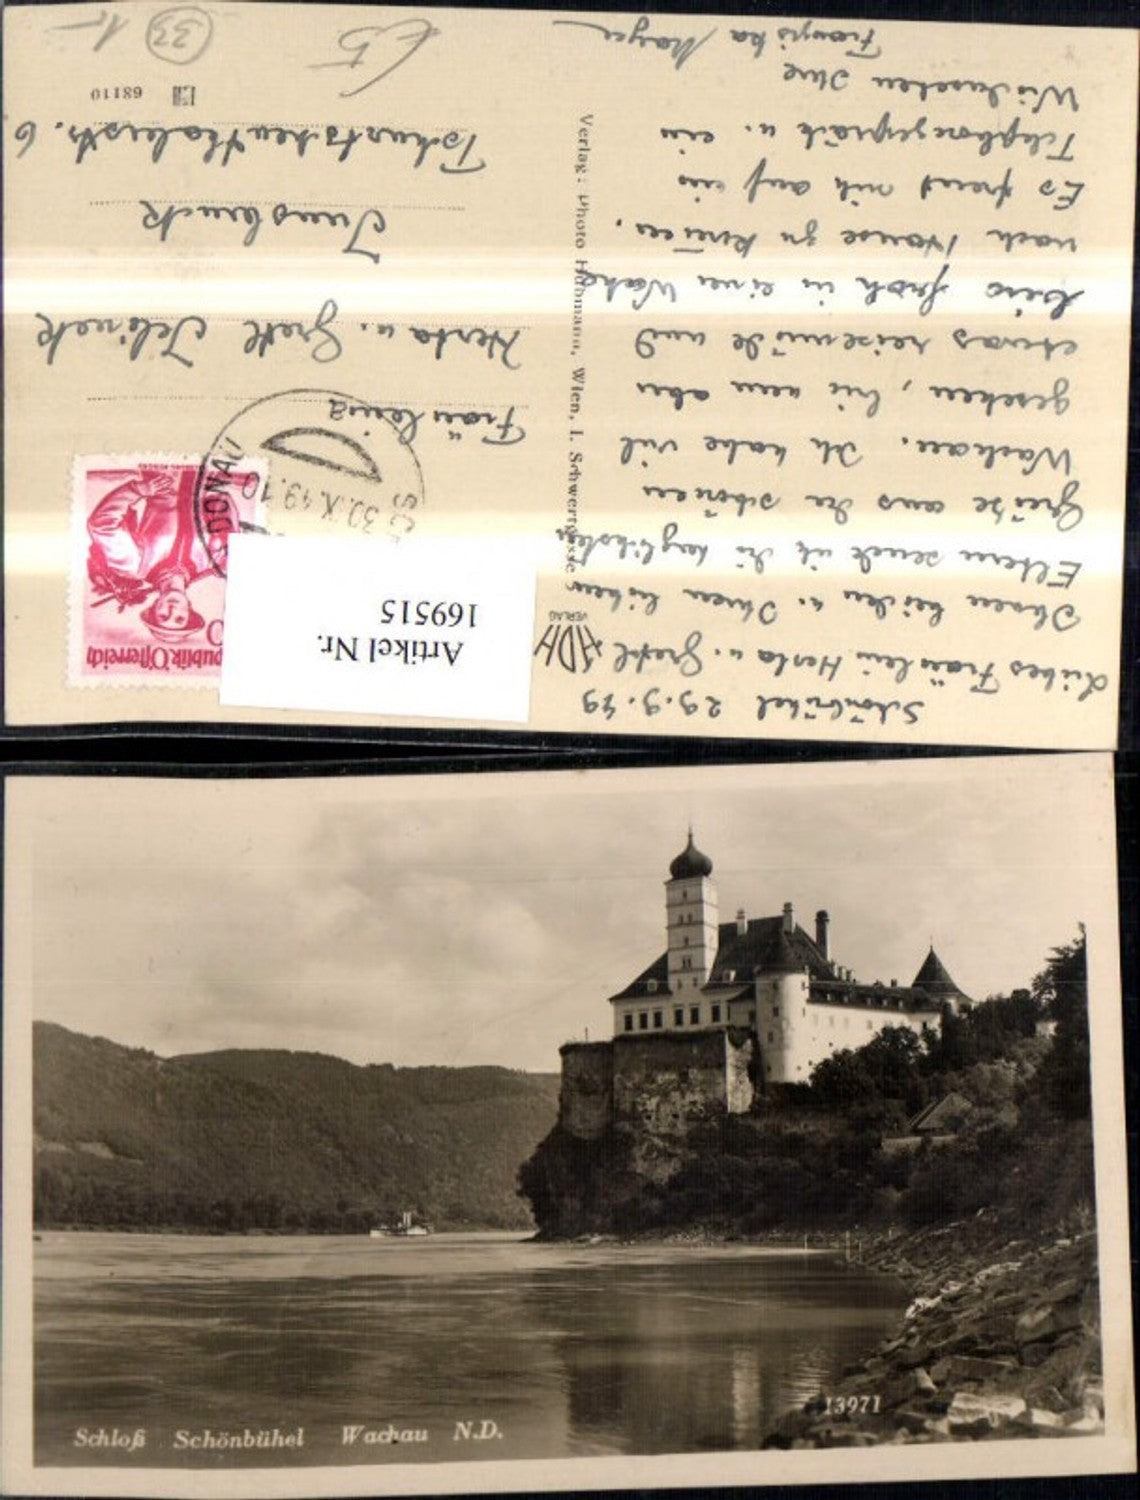 Schönbühel 29.9.49
Liebes Fräulein Herta u. Gretl
Ihnen beiden u. Ihren lieben
Eltern sende ich die herzlichsten
Grüße aus der schönen
Wachau. Ich habe viel
gesehen, bin nun aber
etwas reisemüde und
bin froh in einer Woche
nach Hause zu können.
Es freut mich auf ein
Telephongespräch u. ein
Wiedersehen Ihre
Franziska Mayer
HDH
VERLAG
Verlag: Photo Hofmann, Wien, I. Schwertgasse
Republik Österreich
DONAU
30.IX.49.10
Artikel Nr.
169515
Fräulein
Herta u. Gretl Jelinek
Innsbruck
Tschurtschenthalerstr. 6
68110
33
Schloß Schönbühel Wachau N.D.
13971